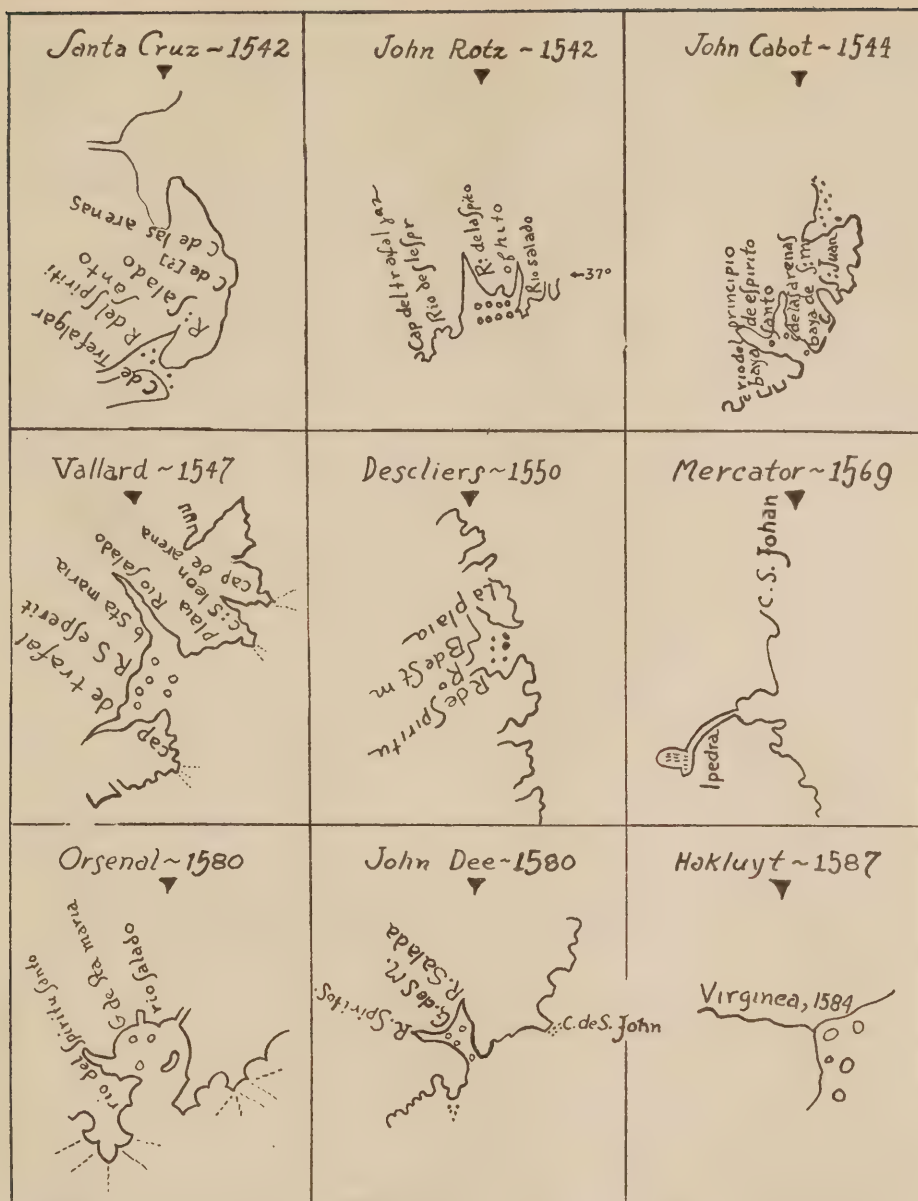 Santa Cruz ~ 1542
C de las arenas
C de [?]
R: Salado
R del Spiriti
Santo
C de Trefalgar
John Rotz ~ 1542
Cap del trafal jaz
Rio des lespr
R: de laspito
ophito
Rio salado
←37°
John Cabot ~ 1544
rio del principio
baya de espirito
santo
de las arenas
baya de S: m
S: Juan
Vallard ~ 1547
Cap de trafal
R S esperit
b Sta maria
Rio salado
plaia
C: S leon
cap de arena
Descliers ~ 1550
La
plaia
B de St m
Ro
R de Spiritu
Mercator ~ 1569
C. S. Johan
I pedra
Orsenal ~ 1580
rio del Spiritu santo
G de Sta maria
rio salado
John Dee ~ 1580
R. Spiritos.
G. de S M.
R. Salada
C. de S. John
Hakluyt ~ 1587
Virginea, 1584